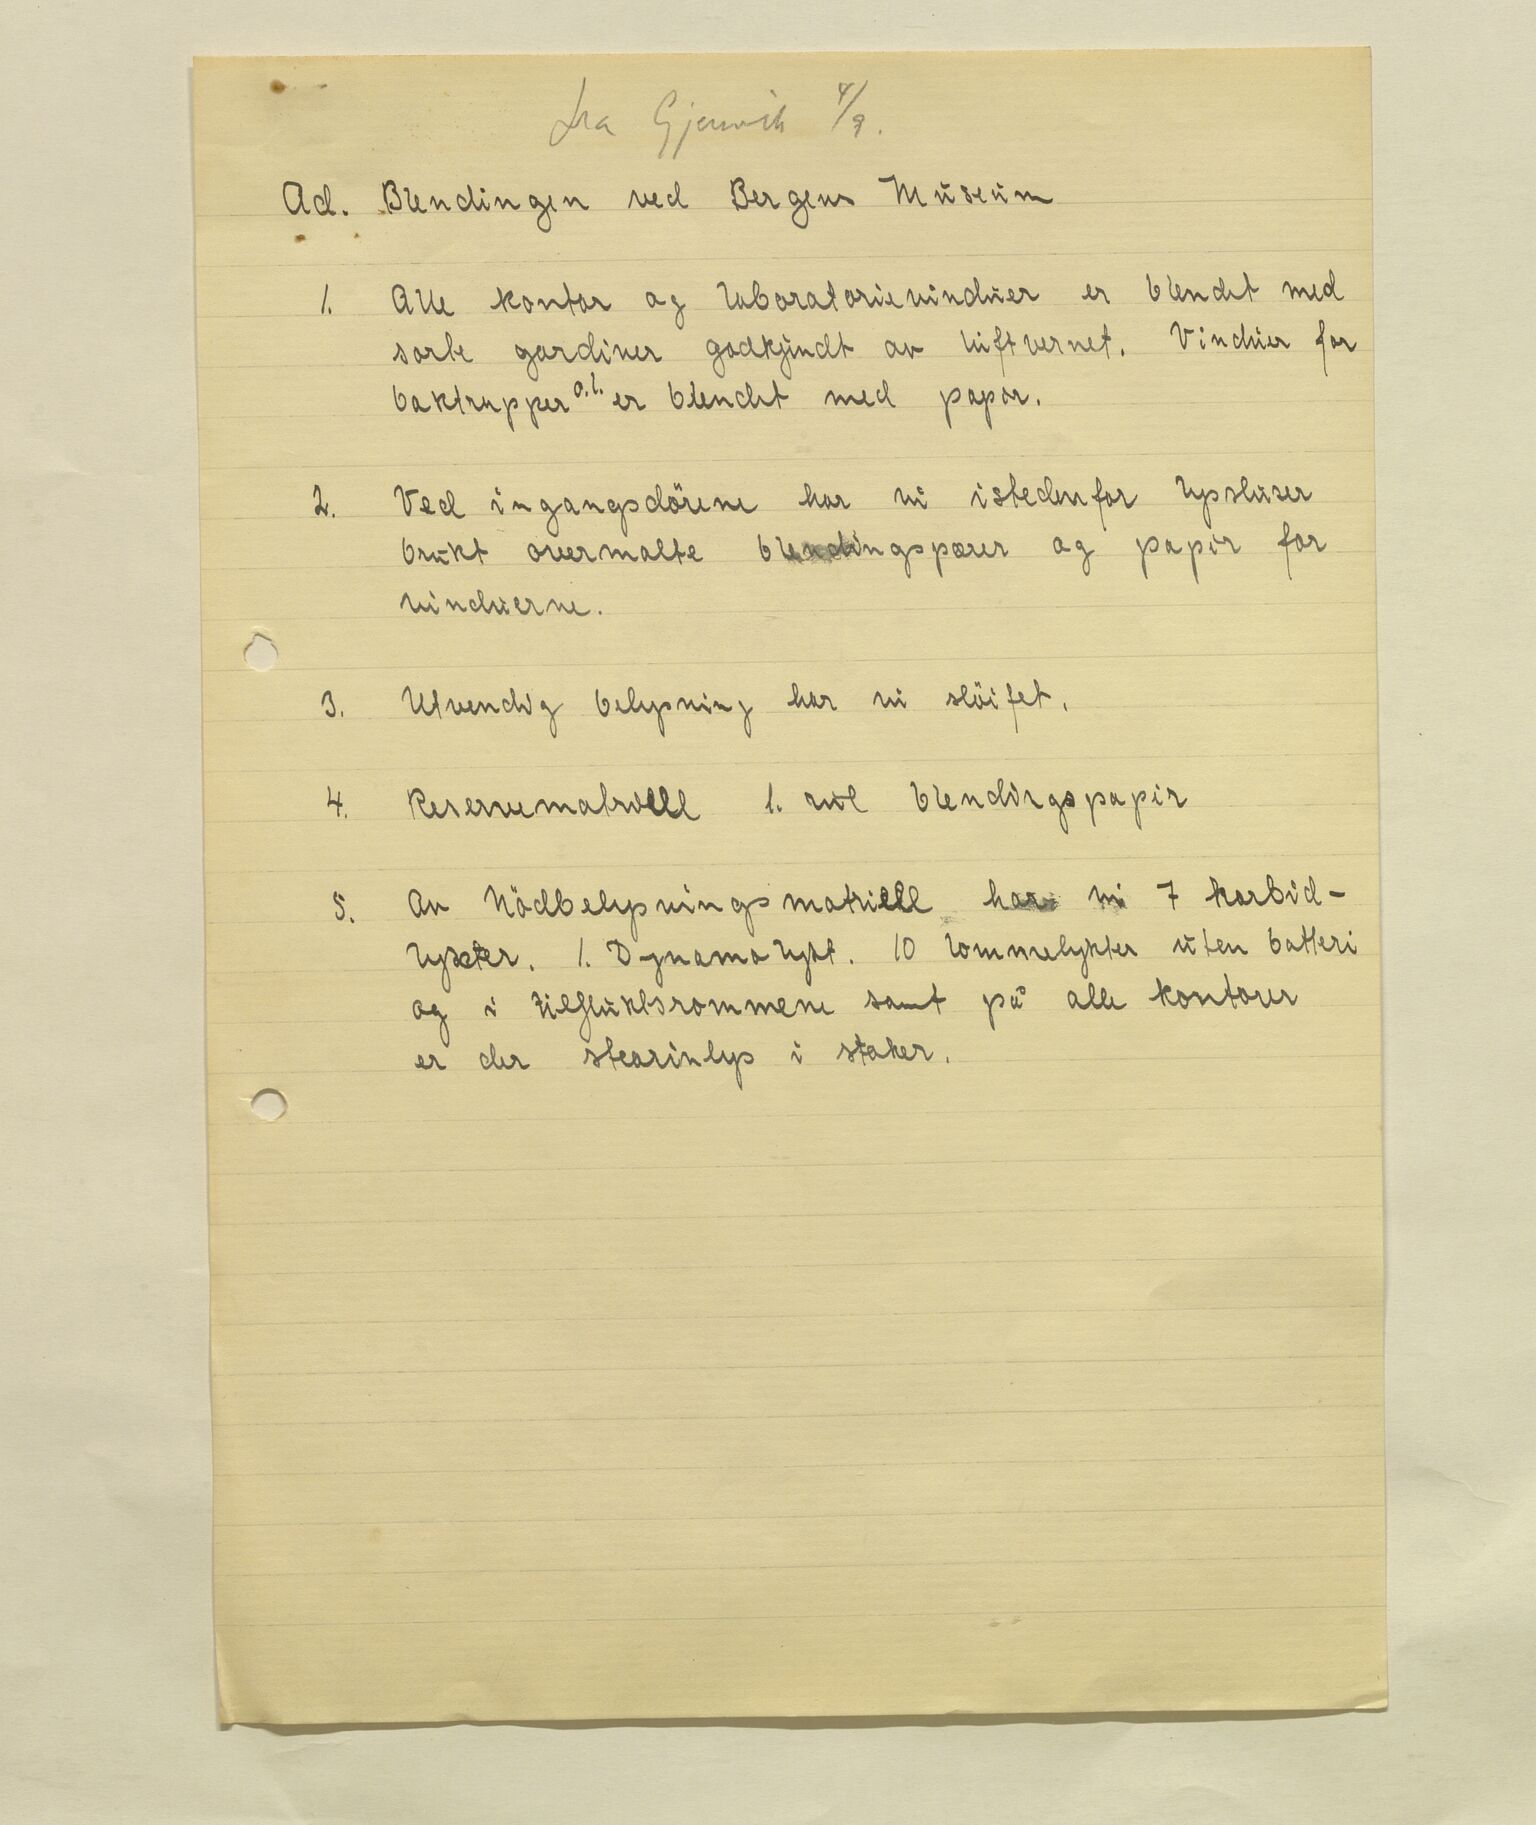 fra Gjervik 4/9.
Ad. Blendingen ved Bergens Museum
1. Alle kontor og laboratorievinduer er blendet med
sorte gardiner godkjendt av luftvernet. Vinduer for
baktrapper o.l. er blendet med papir.
2. Ved ingangsdörene har vi istedenfor lyssluser
brukt overmalte blendingspærer og papir for
vinduerne.
3. Utvendig belysning har vi slöifet.
4. Reservematriell 1. rul blendingspapir
5. Av Nödbelysningsmatriell har vi 7 karbid-
lykter. 1. Dynamolykt. 10 lommelykter uten batteri
og i tilfluktsrommene samt på alle kontorer
er der stearinlys i staker.